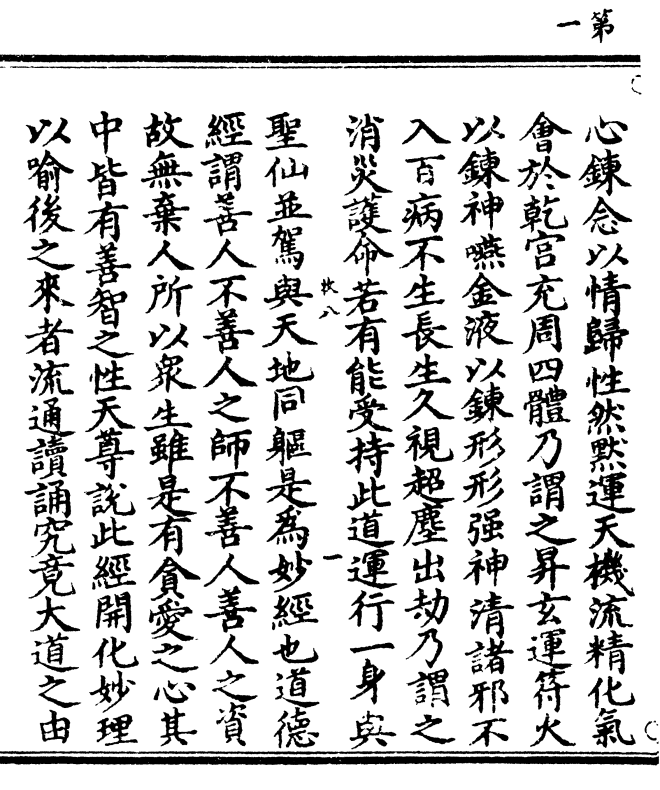 第一
心鍊念以情歸性然默運天機流精化氣
會於乾宮充周四體乃謂之昇玄運符火
以鍊神嚥金液以鍊形形强神清諸邪不
入百病不生長生久視超塵出劫乃謂之
消災護命若有能受持此道運行一身與
牧八
一
聖仙並駕與天地同軀是為妙經也道德
經謂善人不善人之師不善人善人之資
故無棄人所以衆生雖是有貪愛之心其
中皆有善智之性天尊說此經開化妙理
以喻後之來者流通讀誦究竟大道之由